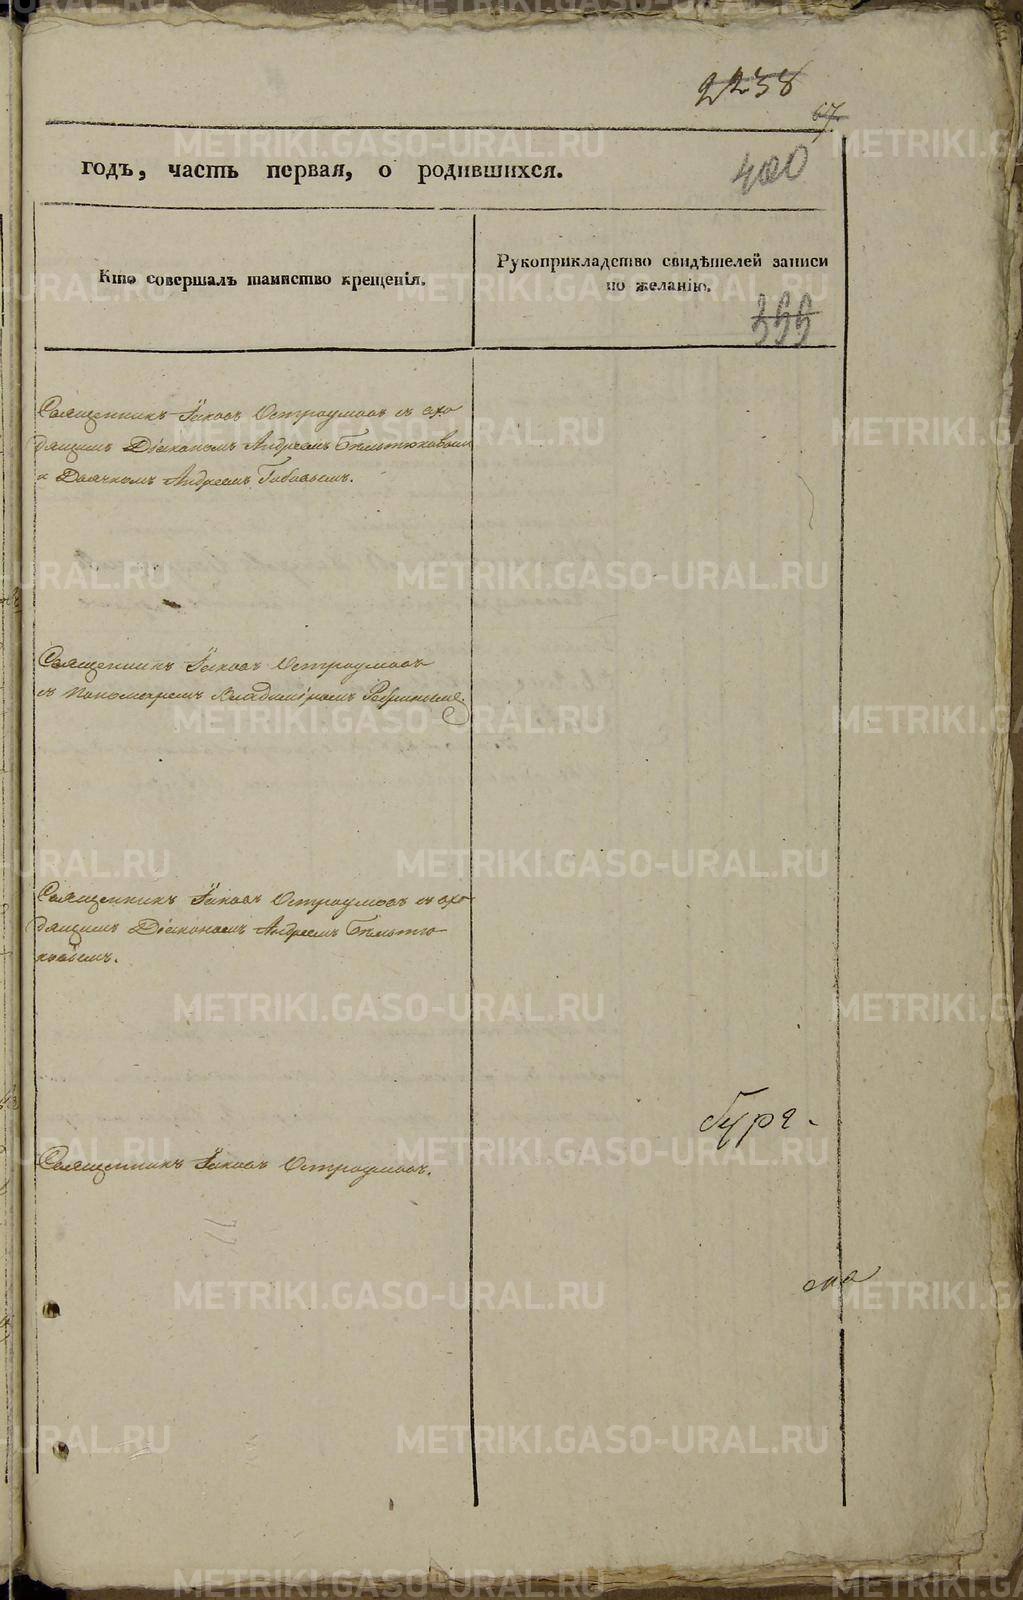 2238
67.
годъ, часть первая, о родившихся.
400
Кто совершалъ таинство крещенія.
Рукоприкладство свидѣтелей записи
по желанію.
355
Священникъ Іаковъ Остроумовъ съ схо
дящимъ Діакономъ Андреемъ Бѣльтюковымъ
и Дьячкомъ Андреемъ
Священникъ Іаковъ Остроумовъ
съ Пономаремъ Владиміромъ
Священникъ Іаковъ Остроумовъ съ схо
дящимъ Діакономъ Андреемъ Бѣльтю
ковымъ.
Священникъ Іаковъ Остроумовъ.
METRIKI.GASO-URAL.RU